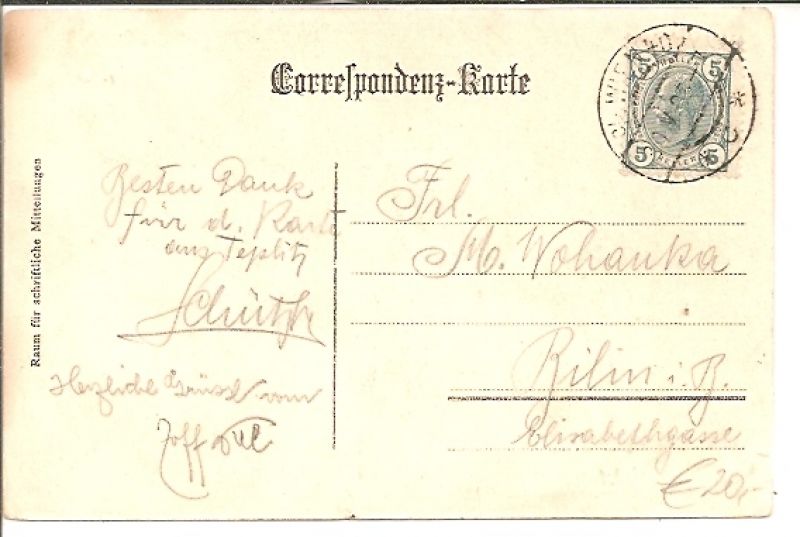 Correspondenz-Karte
5 5
HELLER
5 5
Raum für schriftliche Mitteilungen
Besten Dank
für d. Karte
aus Teplitz
Herzliche Grüsse vom
Frl.
M. Wohanka
Bilin i. B.
Elisabethgasse
€ 20,-